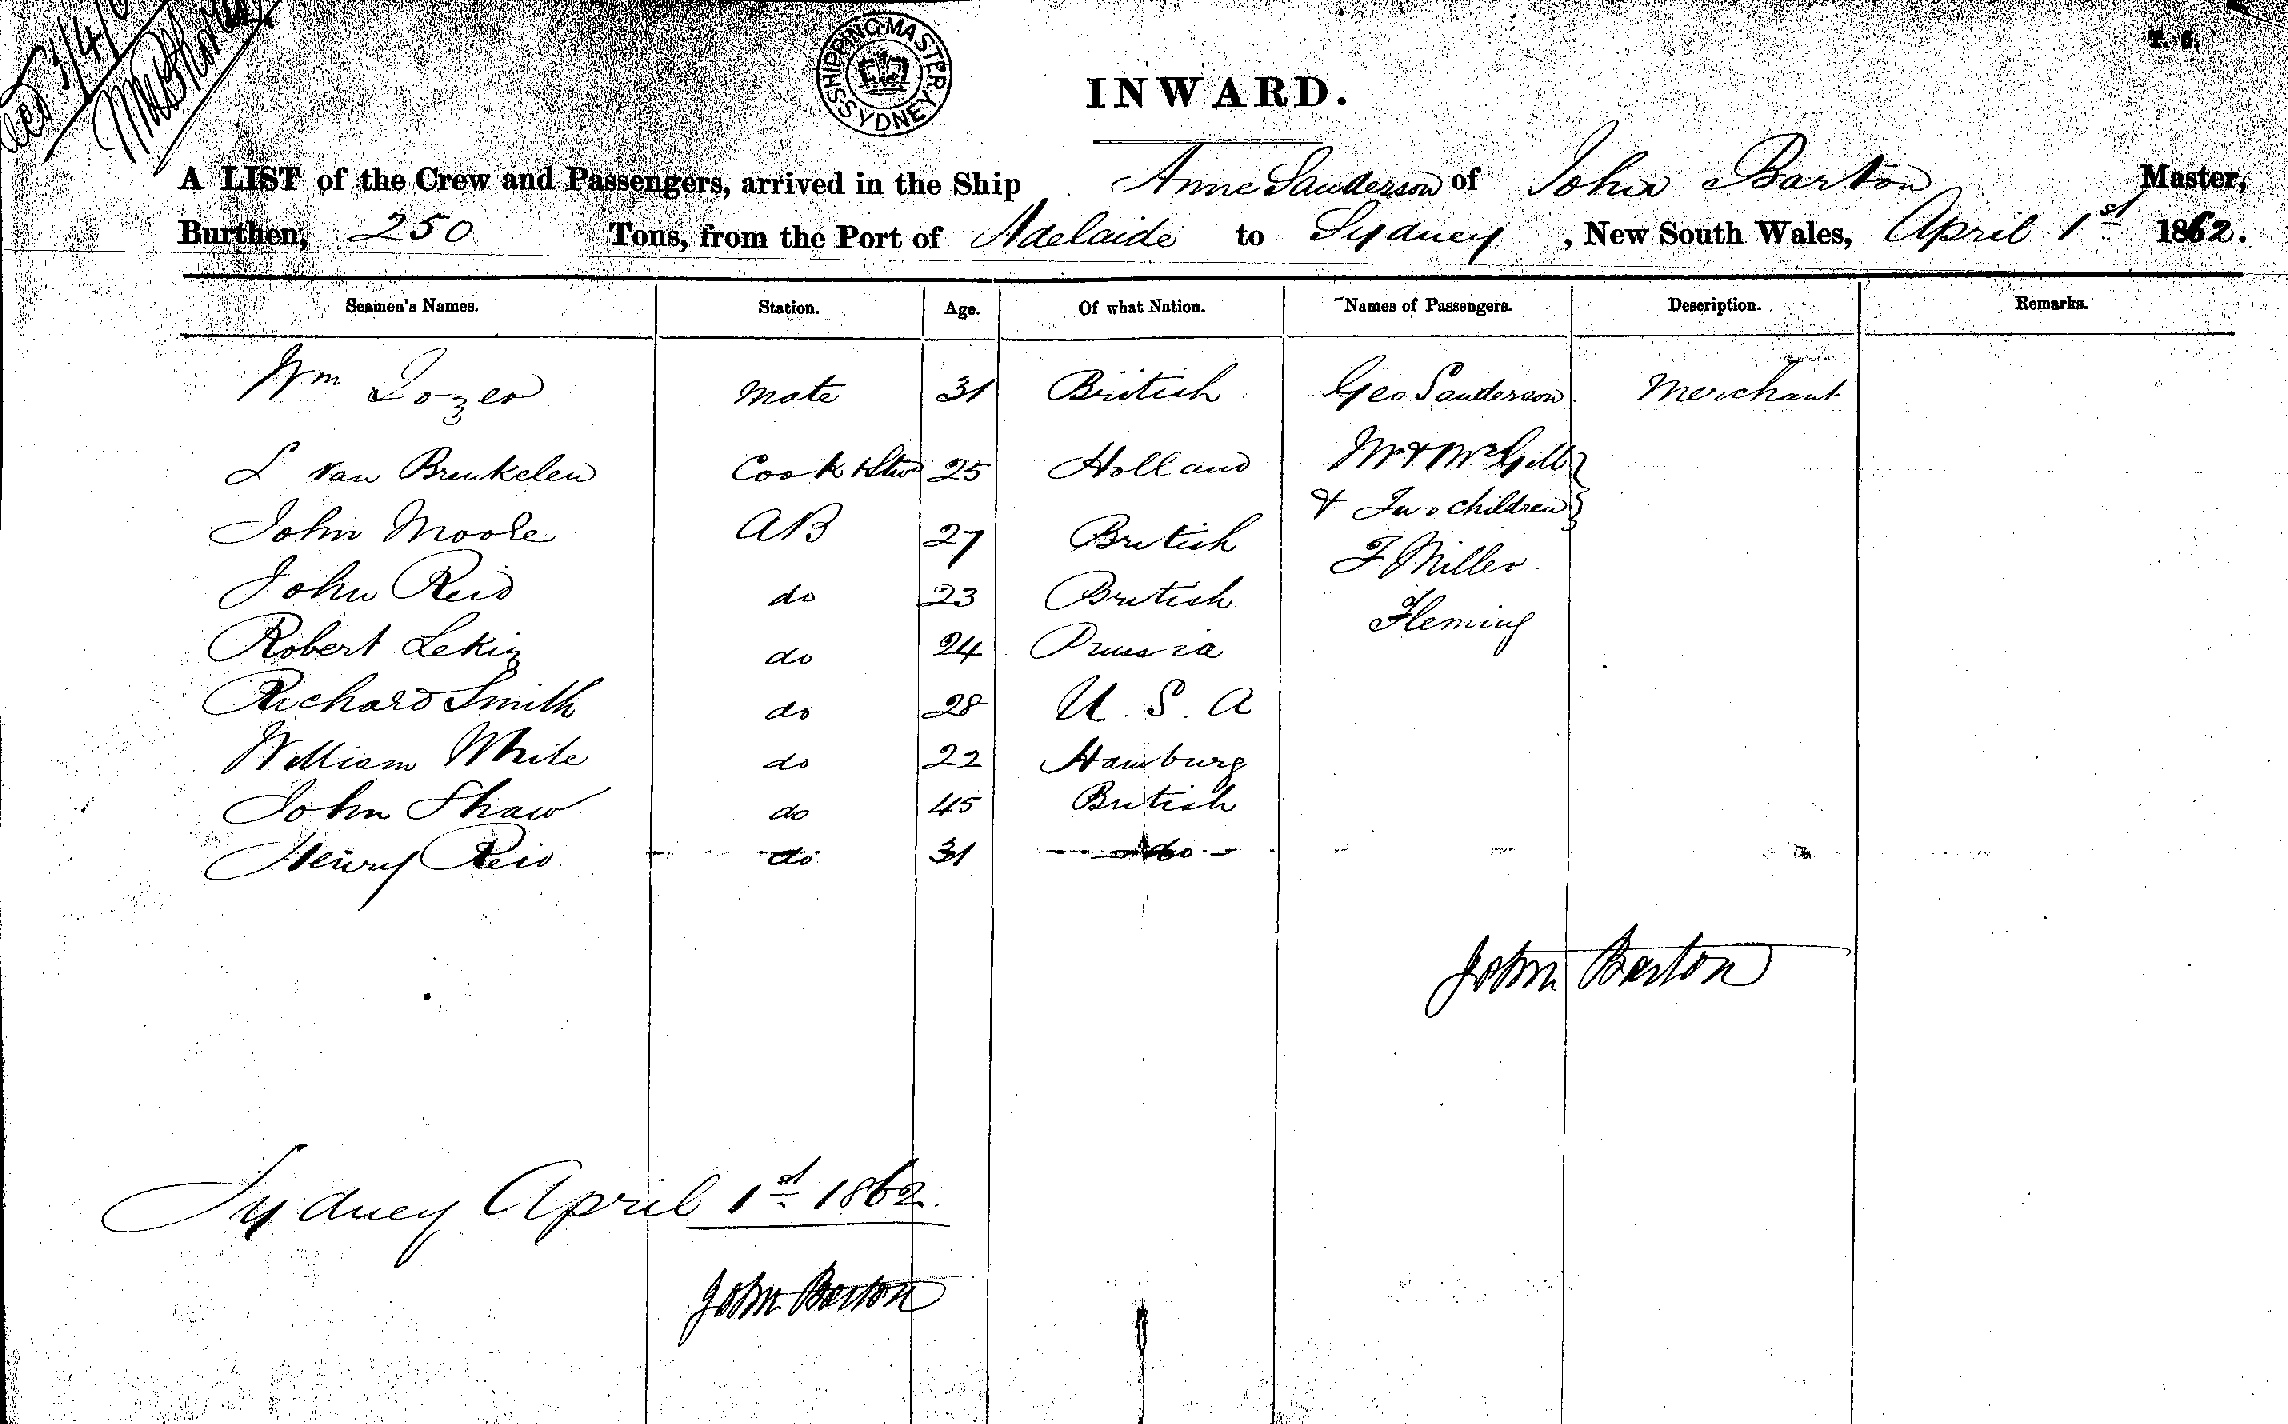 SHIPPING MASTER SYDNEY
INWARD.
A LIST of the Crew and Passengers, arrived in the Ship Anne Sanderson of John Barton Master,
Burthen, 250 Tons, from the Port of Adelaide to Sydney, New South Wales, April 1st 1862.
Seamen's Names. Station. Age. Of what Nation. Names of Passengers. Description. Remarks.
Wm Tozer Mate 31 British Geo Sanderson Merchant
L van Breukelen Cook & Stwd 25 Holland Mr & Mrs Gill
& Two children
John Moore AB 27 British
F Miller
John Reid do 23 British
Fleming
Robert do 24 Prussia
Richard Smith do 28 U.S.A
William White do 22 Hamburg
John Shaw do 45 British
Henry Reid do 31 do
John Barton
Sydney April 1st 1862.
John Barton